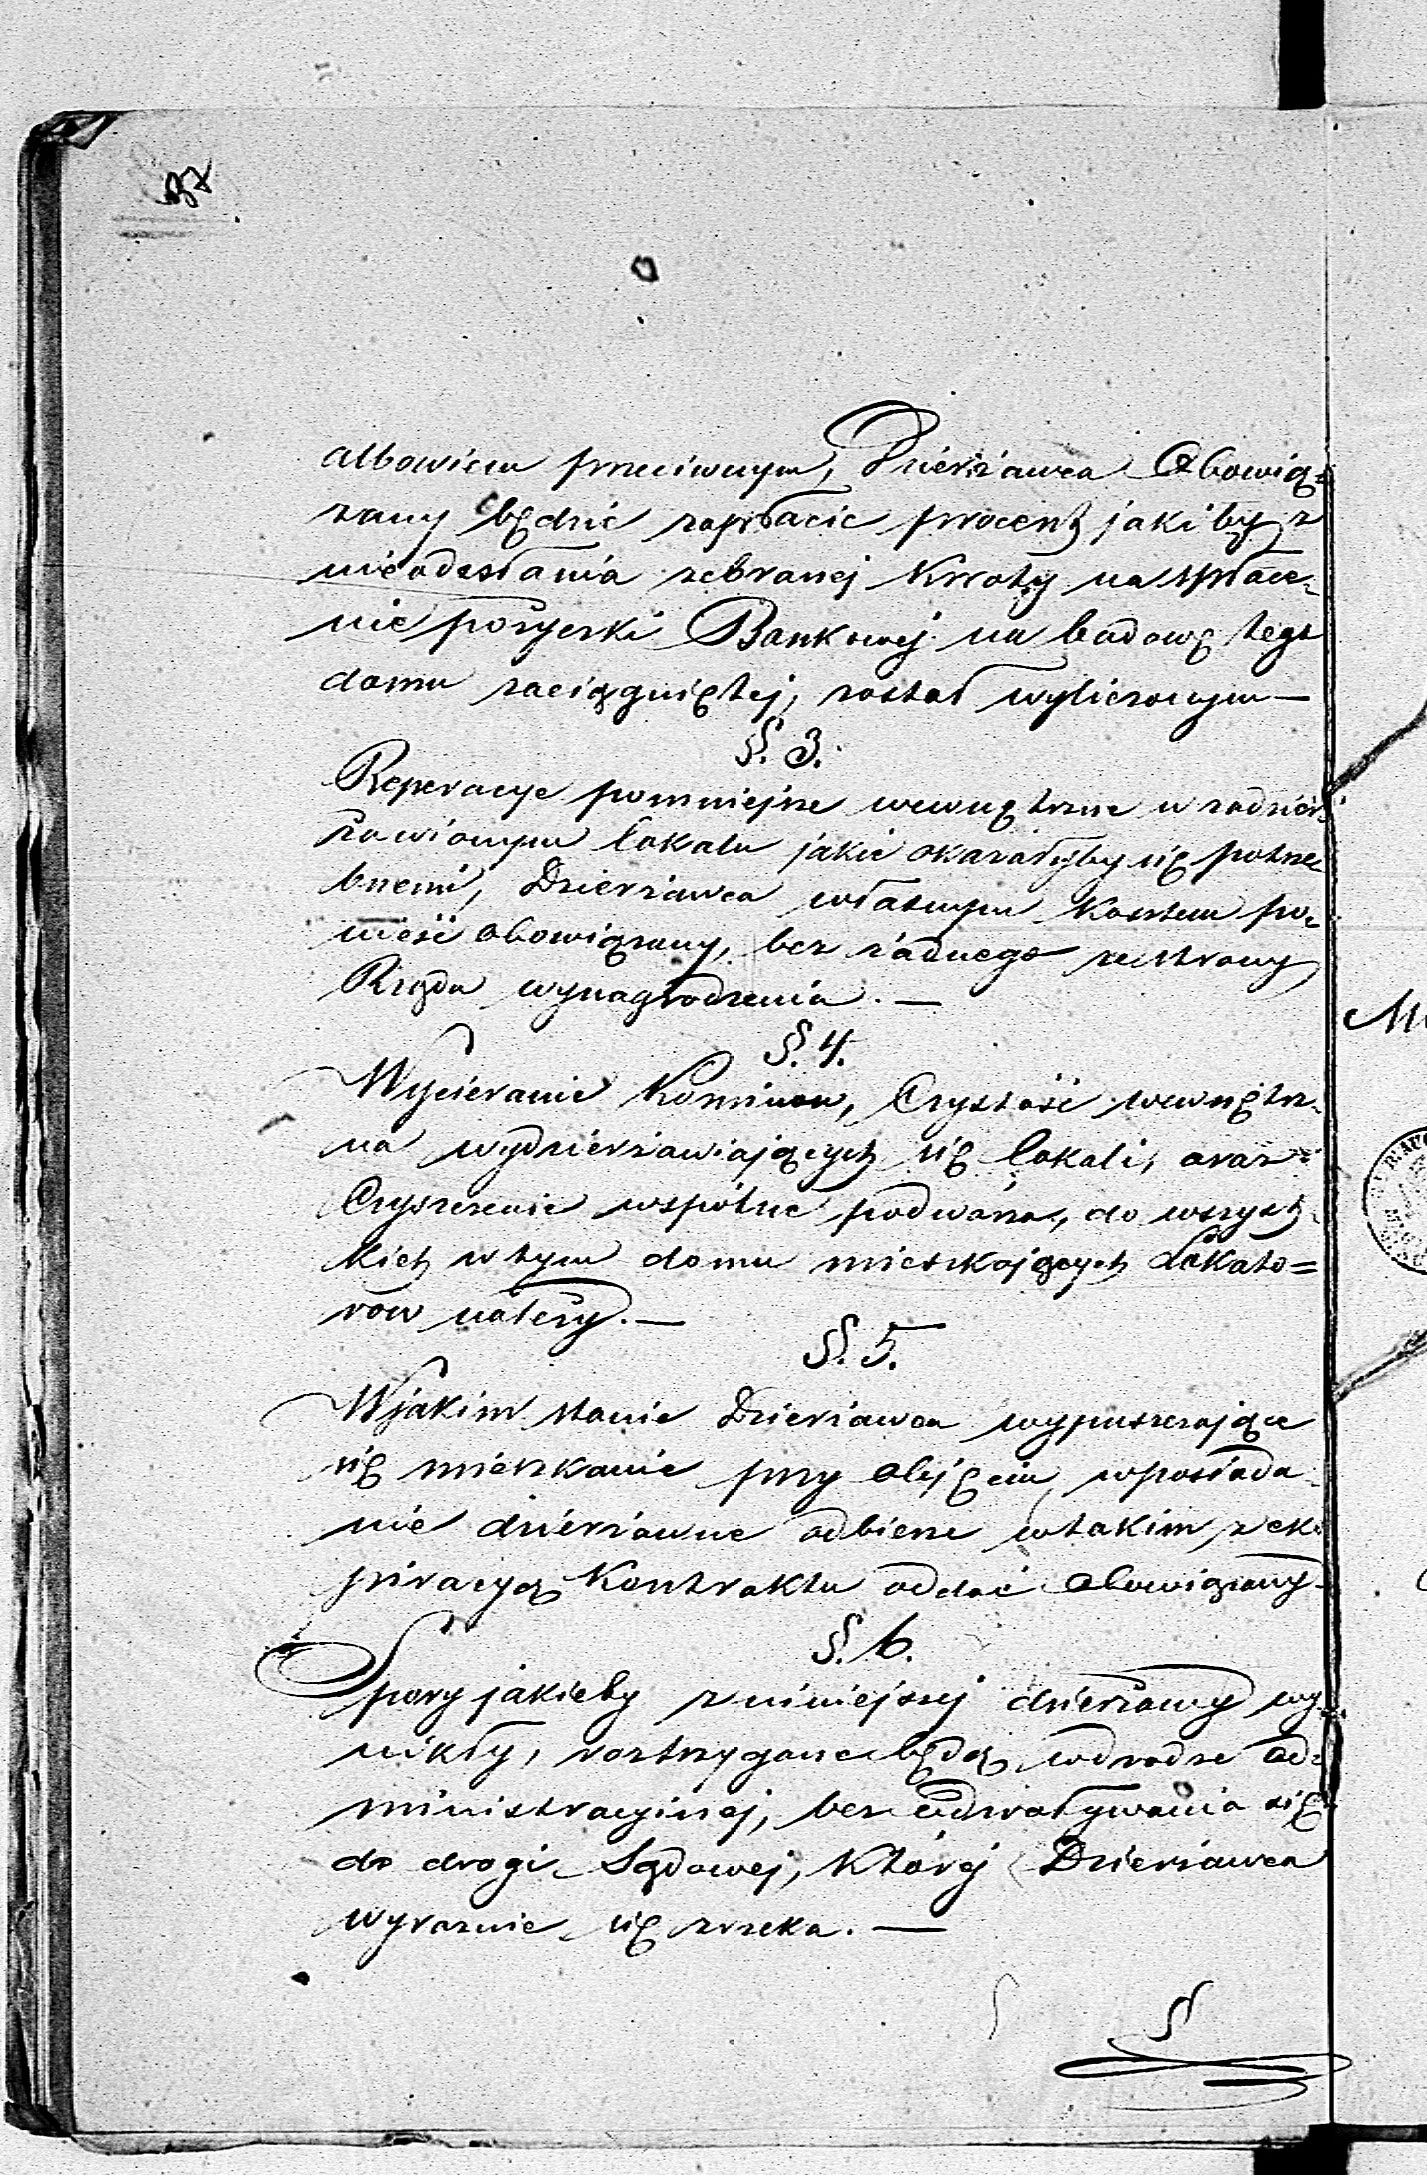 87
albowiem przeciwnym, Dzierżawca Obowią-
zany będzie zapłacić procent jakiby z
nieodesłania zebranej Kwoty na spłace-
nie pożyczki Bankowej na budowę tego
domu zaciągniętej, został wyliczonym —
§. 3.
Reperacye pomniejsze wewnętrzne w zadzier-
żawionym lokalu jakie okazałyby się potrze-
bnemi, Dzierżawca własnym Kosztem po-
nieść obowiązany, bez żadnego ze strony
Rządu wynagrodzenia. —
§. 4.
Wycieranie Kominow, Czystość wewnętrz-
na wydzierżawiających się lokali, oraz
Czyszczenie wspólne podwórza, do wszyst-
kich w tym domu mieszkających Lokato=
row należy. —
§. 5.
W jakim stanie Dzierżawca wypuszczające
się mieszkanie przy objęciu w posiada-
nie dzierżawne odbierze w takim, z eks-
piracyą Kontraktu oddać obowiązany
§. 6.
Spory jakieby z niniejszej dzierżawy wy-
nikły, roztrzygane będą w drodze ad-
ministracyjnej, bez odwoływania się
do drogi Sądowej, Której Dzierżawca
wyraznie się zrzeka. —
§